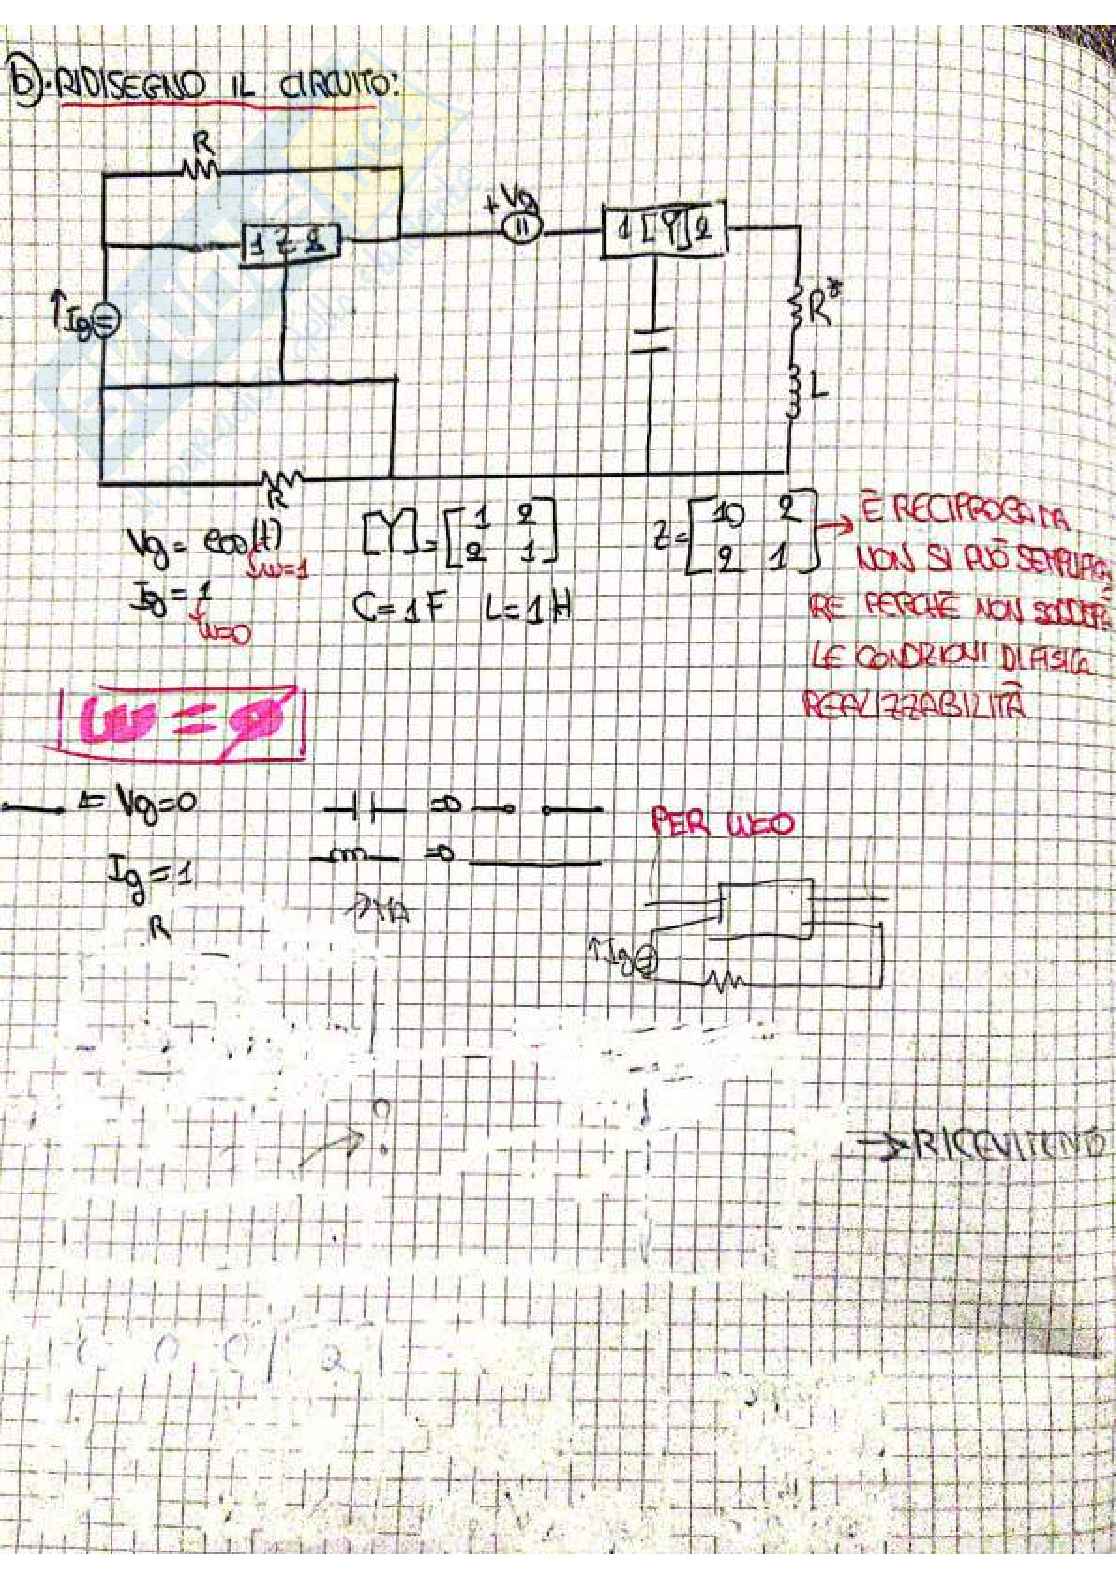 b). RIDISEGNO IL CIRCUITO:
R
+Vg
1 Z 2
1 [Y] 2
↑Ig
R*
L
R
Vg = cos(t)
ω=1
Ig = 1
ω=0
[Y] = [1 2
2 1]
C=1F L=1H
Z = [10 2
2 1]
→ È RECIPROCA MA
NON SI PUÒ SEMPLIFICA
RE PERCHÈ NON SODDISFA
LE CONDIZIONI DI FISICA
REALIZZABILITÀ
ω = 0
Vg=0
Ig=1
R
PER ω=0
↑Ig